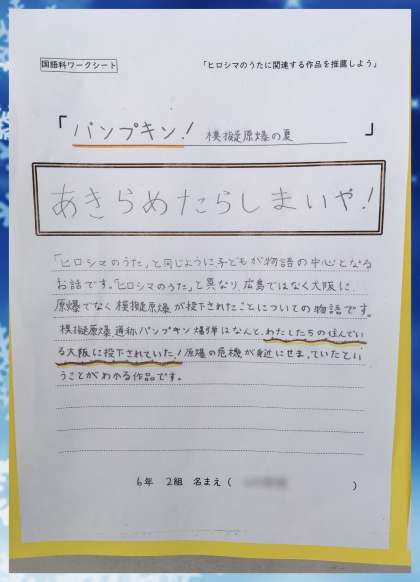 国語科ワークシート
「ヒロシマのうたに関連する作品を推薦しよう」
「パンプキン！ 模擬原爆の夏」
あきらめたらしまいや！
「ヒロシマのうた」と同じように子どもが物語の中心となる
お話です。「ヒロシマのうた」と異なり、広島ではなく大阪に
原爆でなく模擬原爆が投下されたことについての物語です。
模擬原爆通称パンプキン爆弾はなんと、わたしたちの住んでい
る大阪に投下されていた！原爆の危機が身近にせまっていたとい
うことがわかる作品です。
6年 2組 名まえ（ ）